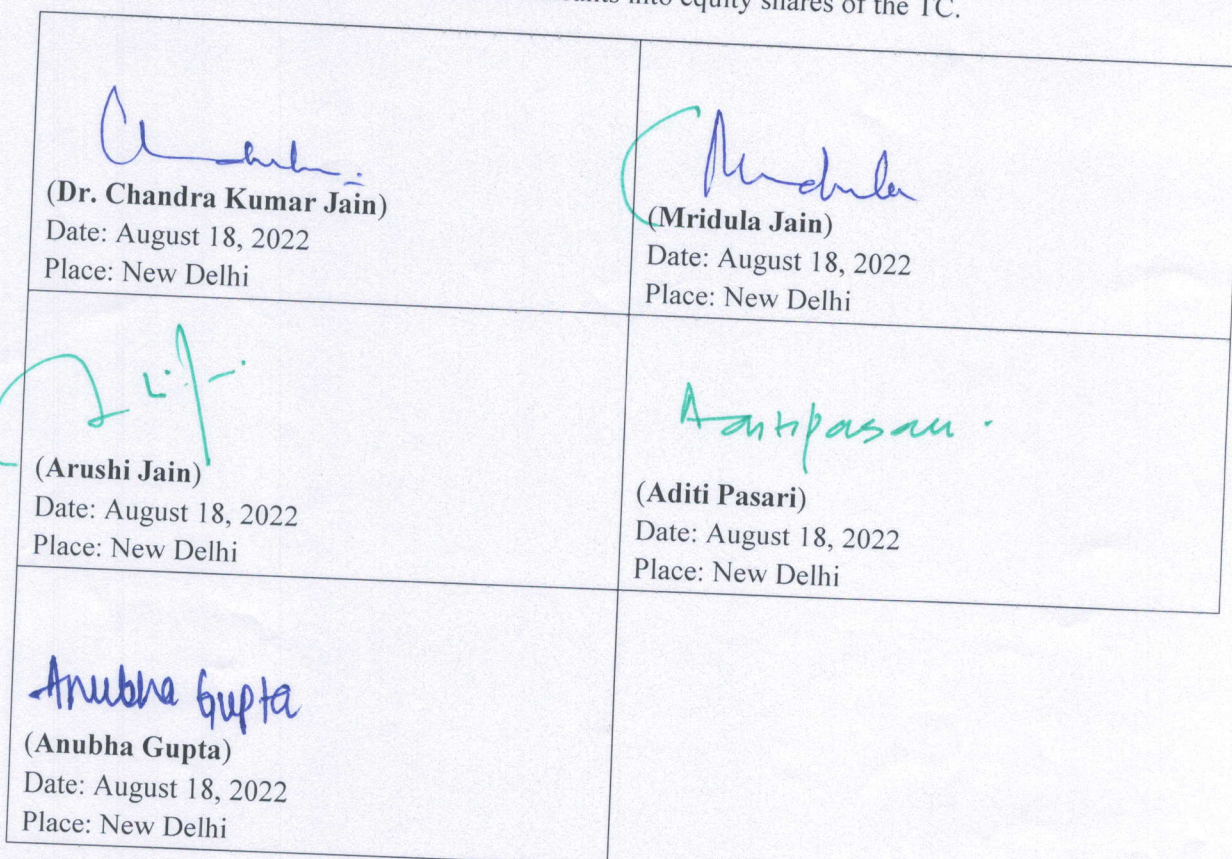 into equity shares of the TC.
(Dr. Chandra Kumar Jain)
Date: August 18, 2022
Place: New Delhi
Mridula
(Mridula Jain)
Date: August 18, 2022
Place: New Delhi
(Arushi Jain)
Date: August 18, 2022
Place: New Delhi
(Aditi Pasari)
Date: August 18, 2022
Place: New Delhi
Anubha Gupta
(Anubha Gupta)
Date: August 18, 2022
Place: New Delhi